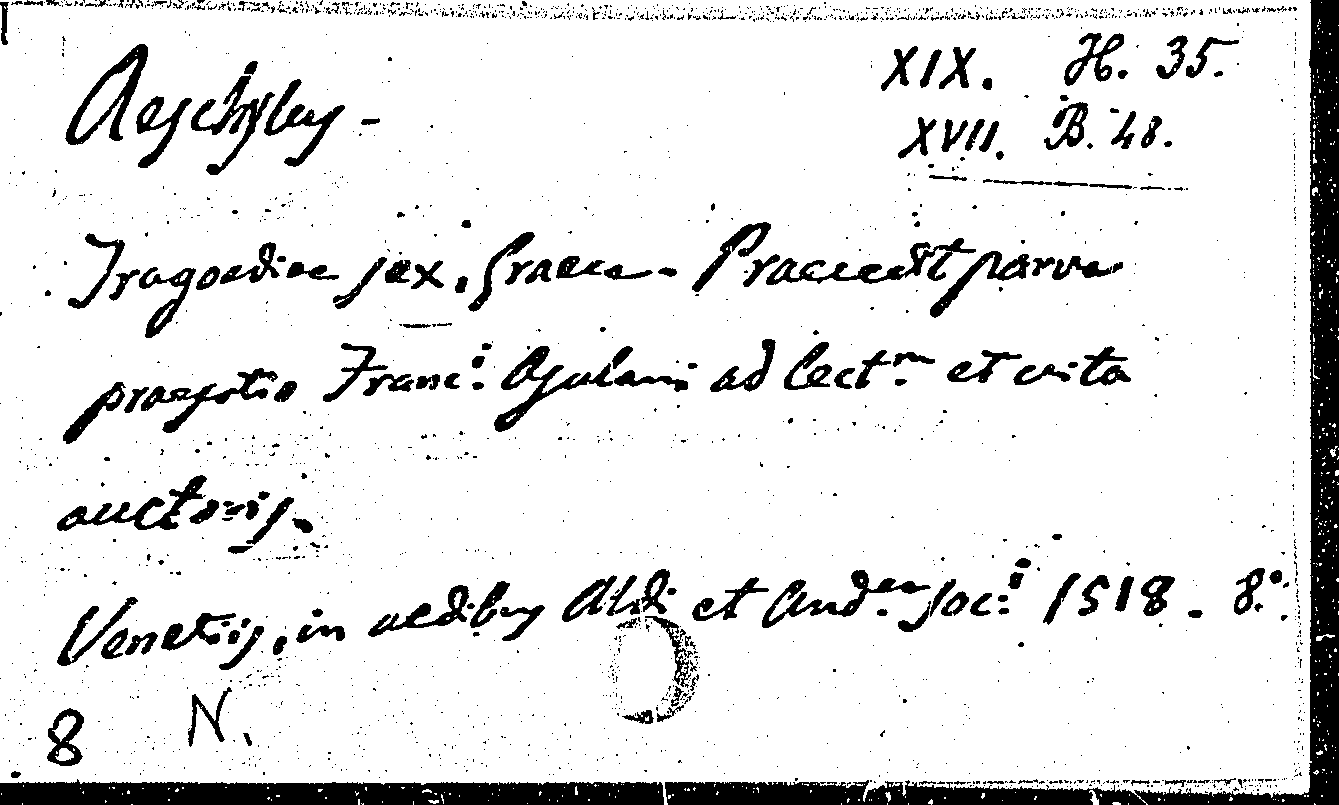 Aeschylus -
XIX. H. 35.
XVII. B. 48.
Tragoediae sex, Graece - Praecedit parva
praefatio Franc.i Asulani ad lect.m et vita
auctoris.
Venetiis, in aedibus Aldi et And.ea soc.i 1518. 8.o
8 N.